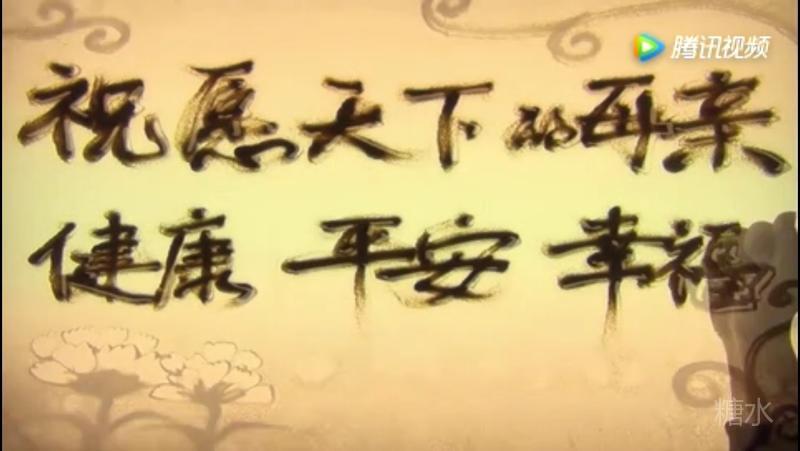 腾讯视频
祝愿天下的母亲
健康 平安 幸福
糖水